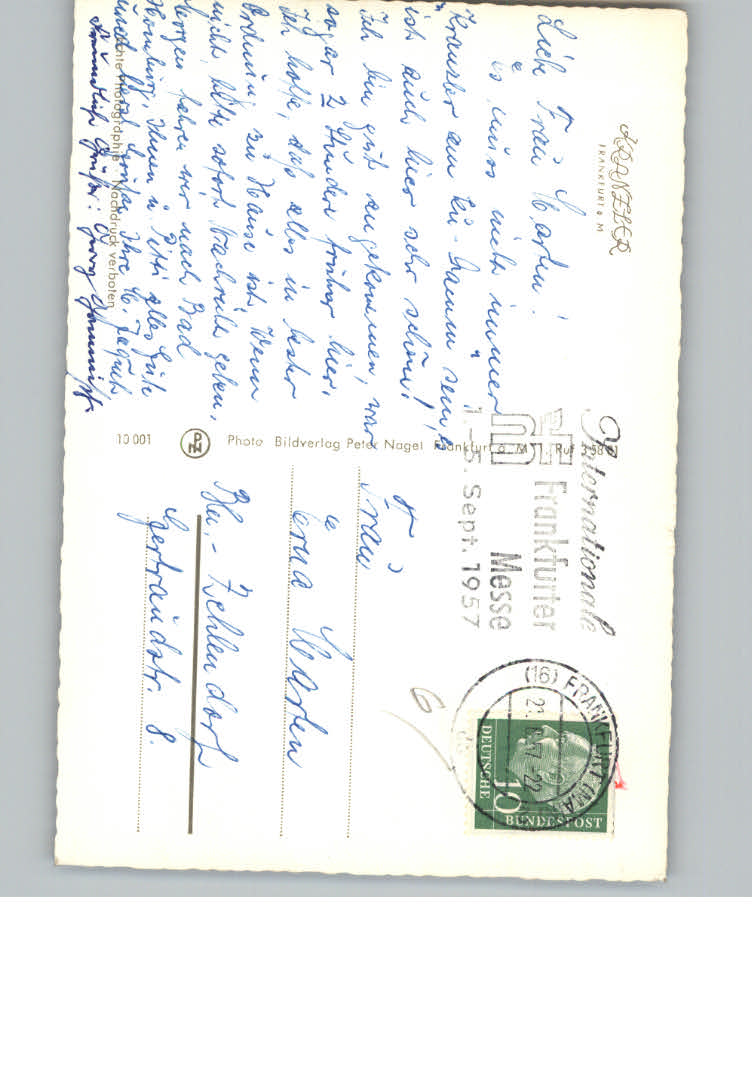 KRANZLER
FRANKFURT a. M
Liebe Frau Marten!
es muss nicht immer
Kranzler am Ku-Damm sein,
ist auch hier sehr schön!
Ich bin gut angekommen, war
sogar 2 Stunden früher hier.
Ich hoffe, daß alles in bester
Ordnung zu Hause ist. Wenn
nicht, bitte sofort Nachricht geben.
Morgen fahren wir nach Bad
Homburg. Ihnen u. Pitti alles Gute
und herzl. Grüße Ihre
Freundliche Grüße: Georg
Echte Photographie · Nachdruck verboten
10 001
PN
Photo Bildverlag Peter Nagel Frankfurt a. M. Ruf
Internationale
Frankfurter
Messe
1.-5. Sept. 1957
(16) FRANKFURT (MAIN)
DEUTSCHE
BUNDESPOST
10
6
Frau
Erna Marten
Bln.-Zehlendorf
Gertraudstr. 8.